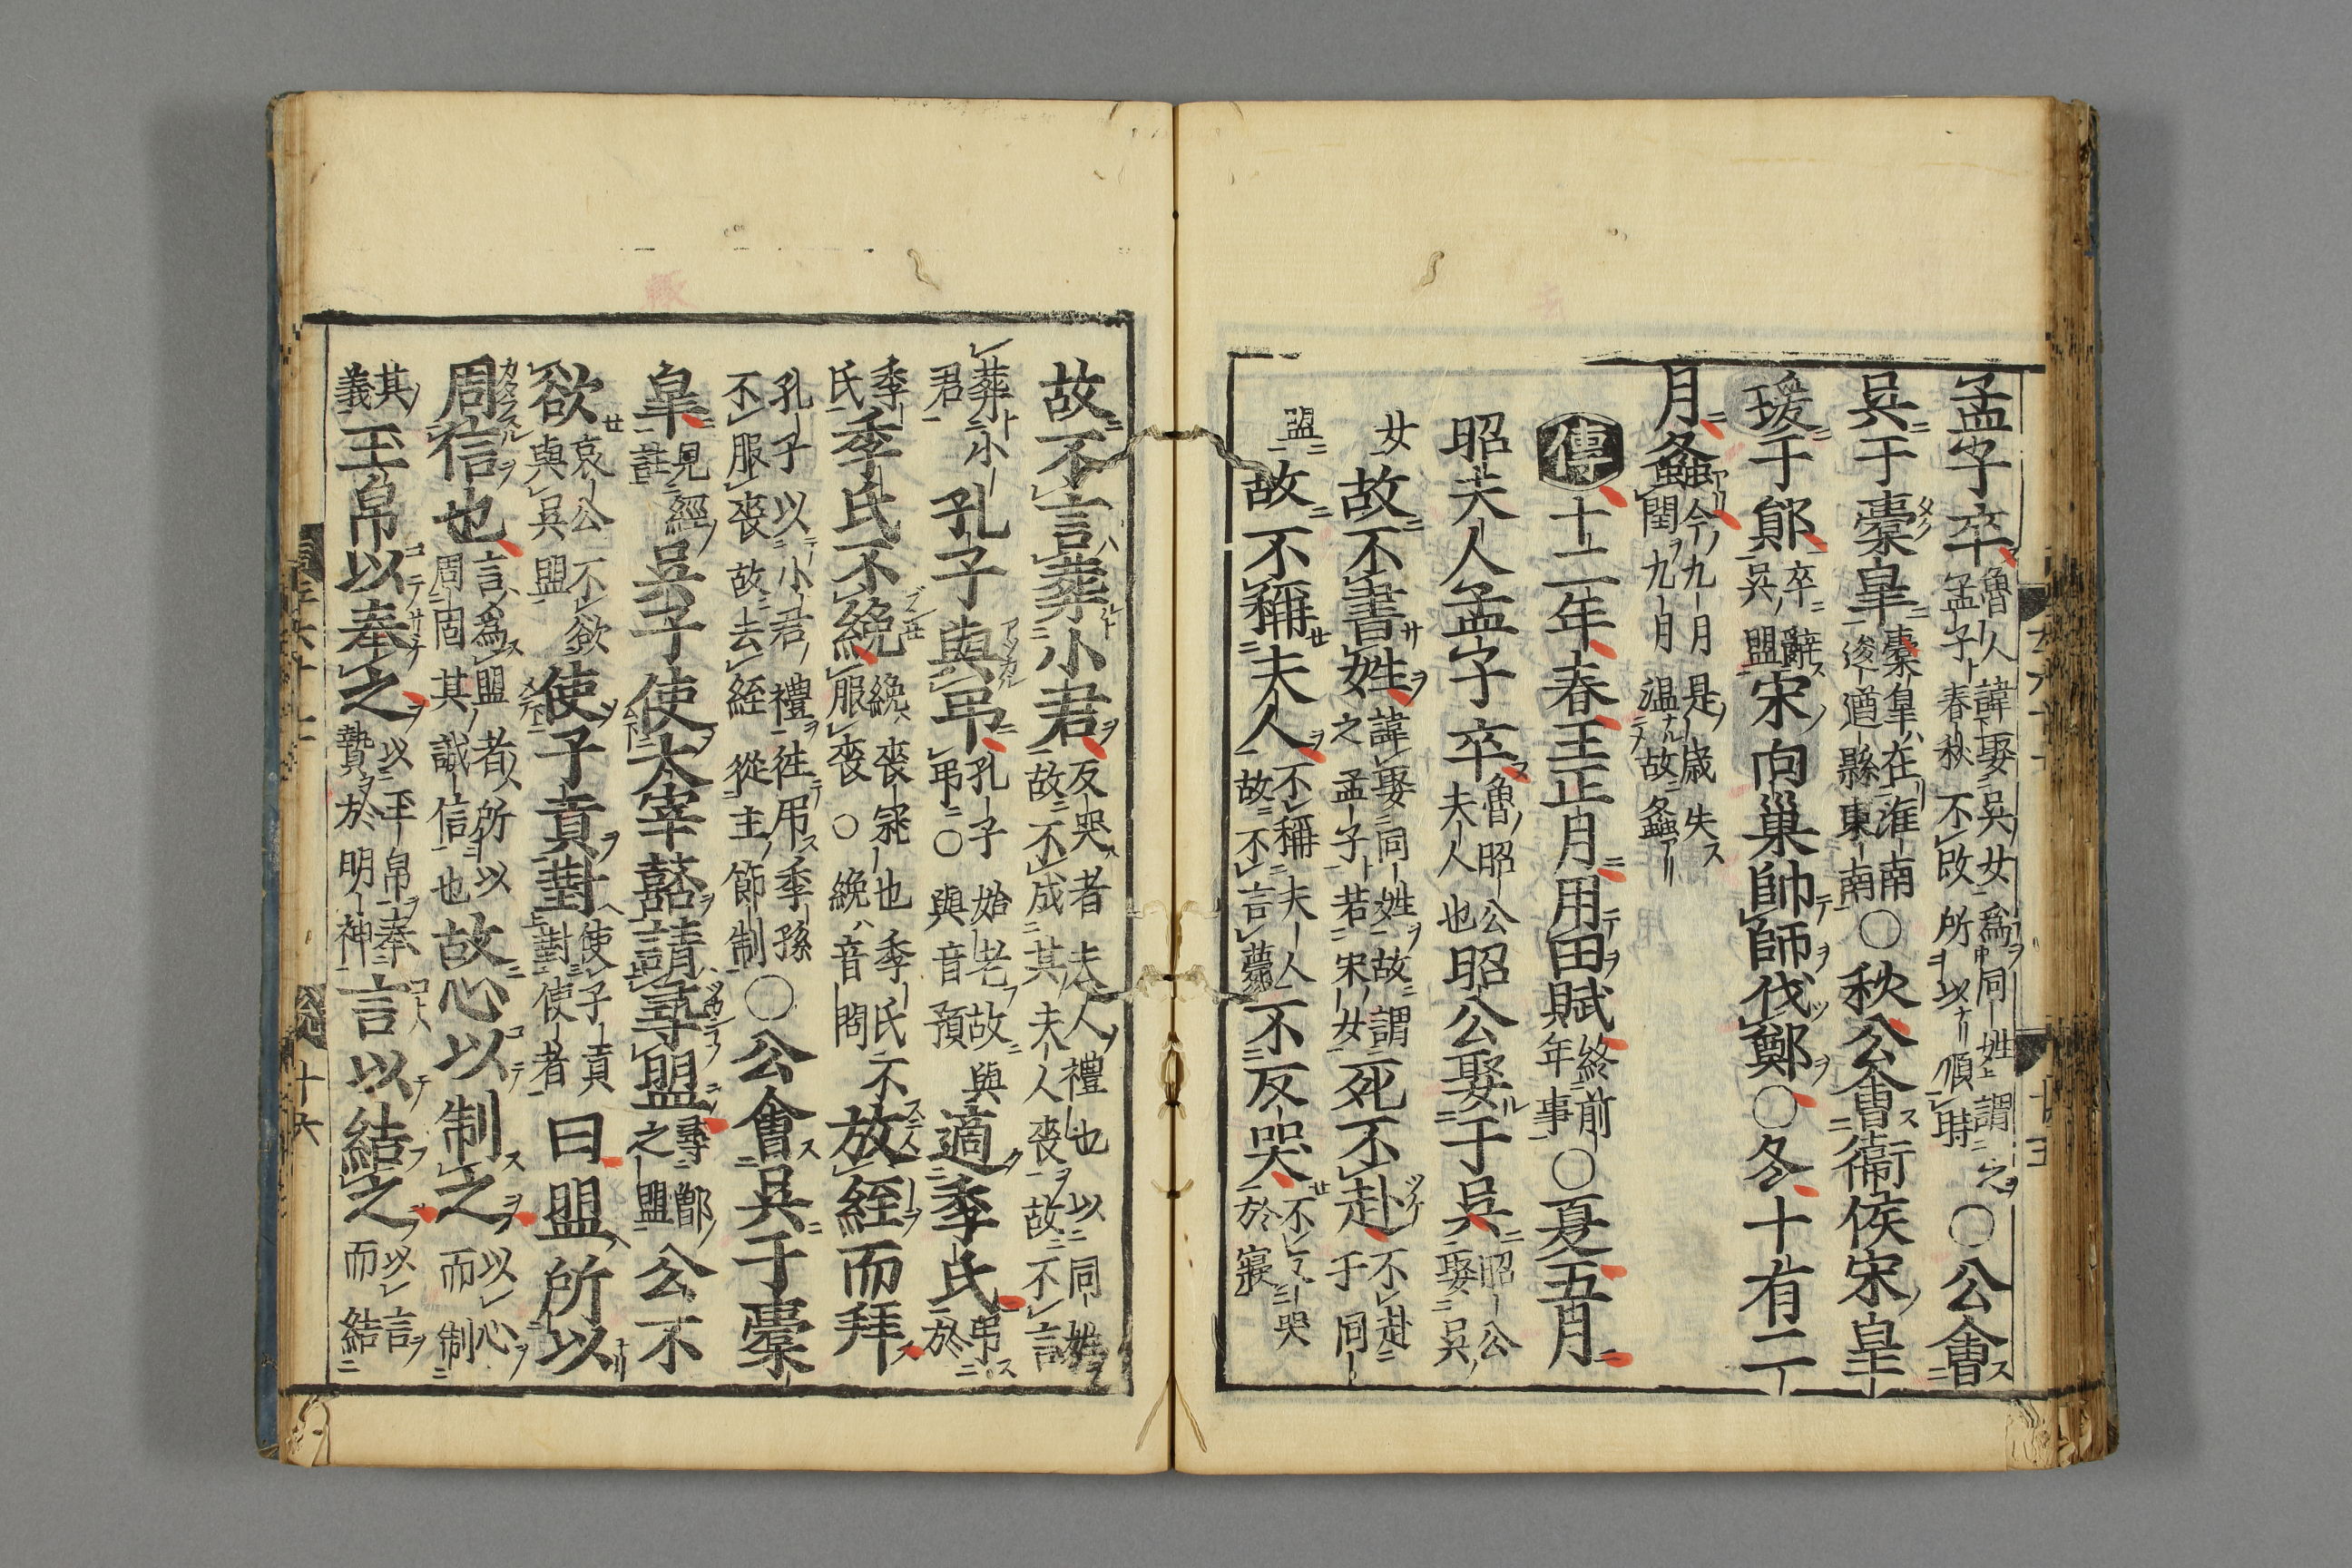 孟子卒魯人諱娶吳女爲同姓謂之孟子春秋不改所以順時○公會
吳于橐皐橐皐在淮南逡遒縣東南○秋公會衞侯宋皇
瑗于鄖卒辭吳盟宋向巢帥師伐鄭○冬十有二
月螽今九月是歲失閏九月温故螽
傳十二年春王正月用田賦終前年事○夏五月
昭夫人孟子卒魯昭公夫人也昭公娶于吳昭公娶吳
女故不書姓諱娶同姓故謂之孟子若宋女死不赴不赴于同
盟故不稱夫人不稱夫人故不言薨不反哭不反哭於寢
故不言葬小君反哭者夫人禮也以同姓故不成其夫人喪故不言
葬小君孔子與弔孔子始老故與弔○與音預適季氏弔於
季氏季氏不絻絻喪冠也季氏不服喪○絻音問放絰而拜
孔子以小君禮往弔季孫不服喪故去絰從主節制○公會吳于橐
皐見經註吳子使大宰嚭請尋盟尋鄫之盟公不
欲哀公不欲與吳盟使子貢對使子貢對使者曰盟所以
周信也言爲盟者所以周固其誠信也故心以制之以心而制
其義玉帛以奉之以玉帛奉贄於明神言以結之以言而結